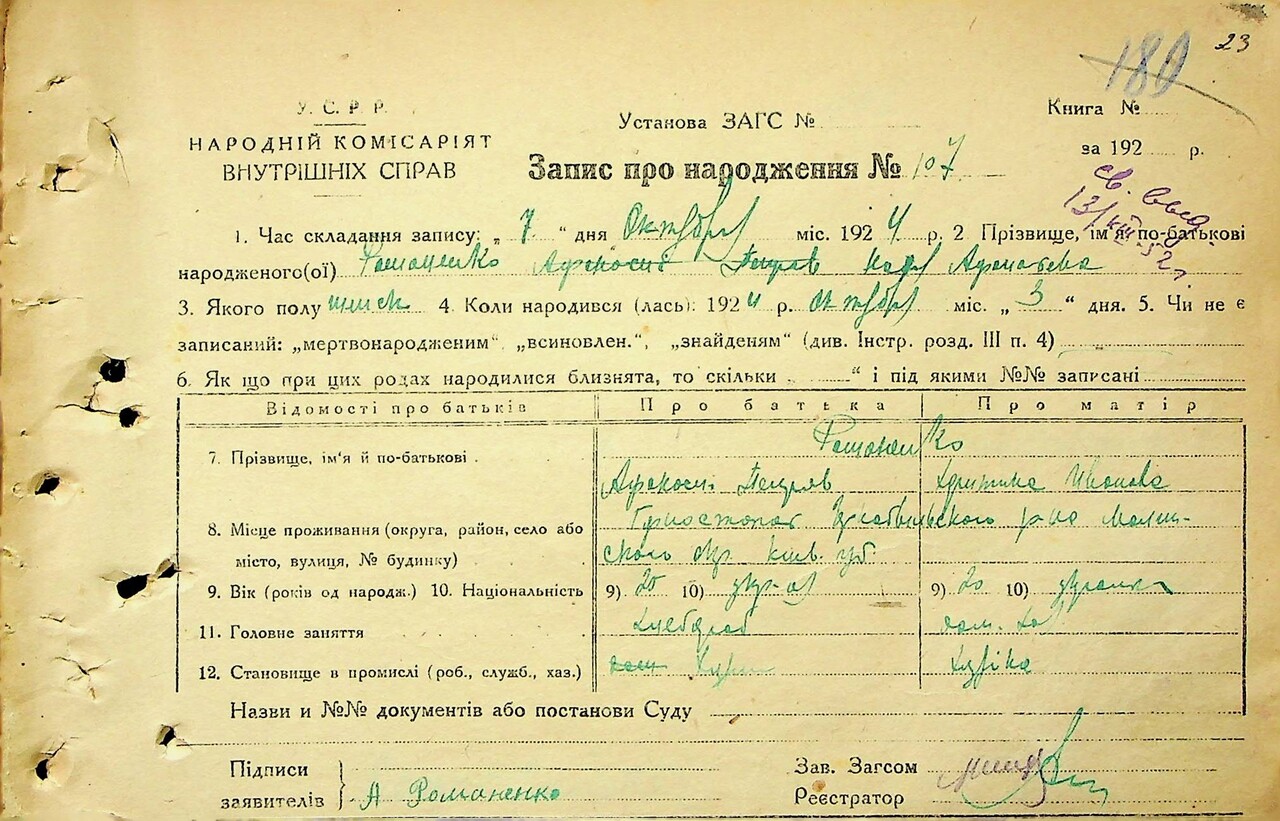 23
180
У. С. Р. Р.
НАРОДНІЙ КОМІСАРІЯТ
ВНУТРІШНІХ СПРАВ
Установа ЗАГС №
Книга №
за 192 р.
Запис про народження № 107
св. выд.
1. Час складання запису: „ 7 “ дня Октября міс. 1924 р. 2 Прізвище, ім'я по-батькові
народженого(ої) Романенко Афанасий Петров
3. Якого полу женск 4. Коли народився (лась): 1924 р. октября міс. „ 3 “ дня. 5. Чи не є
записаний: „мертвонародженим“, „всиновлен.“, „знайденям“ (див. Інстр. розд. III п. 4)
6. Як що при цих родах народилися близнята, то скільки „ “ і під якими №№ записані
Відомості про батьків Про батька Про матір
7. Прізвище, ім'я й по-батькові Романенко
Афанасий Петров Ивановна
8. Місце проживання (округа, район, село або
місто, вулиця, № будинку)
Горностопол Чернобыльского р-на
окр. киев. губ.
9. Вік (років од народж.) 10. Національність 9) 20 10) 9) 20 10)
11. Головне заняття хлебороб дом. хоз
12. Становище в промислі (роб., служб., хаз.)
Назви и №№ документів або постанови Суду
Підписи
заявителів А Романенко
Зав. Загсом
Реєстратор